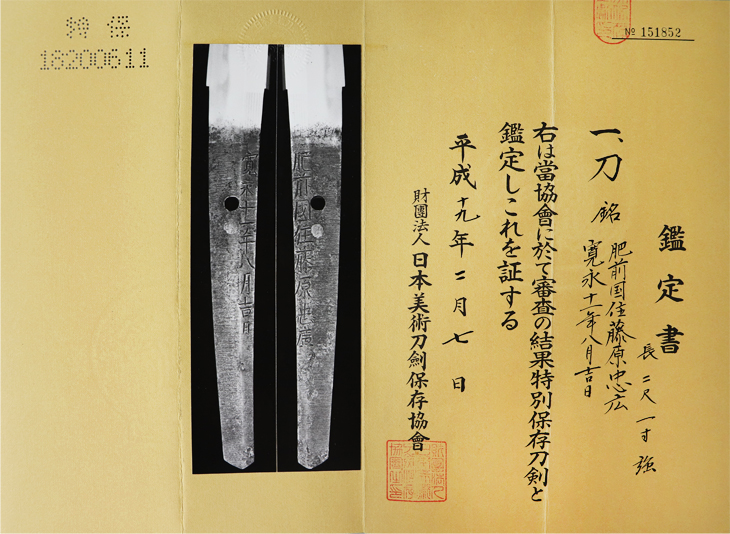 № 151852
鑑定書
一、刀 銘 肥前国住藤原忠広
寛永十一年八月吉日
長二尺一寸強
右は當協會に於て審査の結果特別保存刀剣と
鑑定しこれを証する
平成十九年二月七日
財團法人 日本美術刀劍保存協會
肥前国住藤原忠廣
寛永十一年八月吉日
特保
18200611